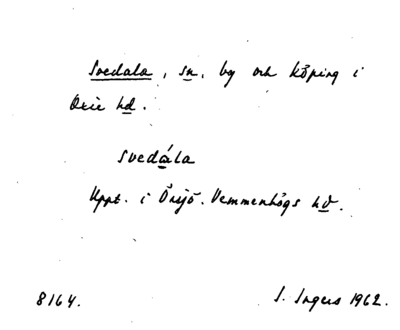 Svedala, sn, by och köping i
Oxie hd.
svedála
Uppt. i Örsjö. Vemmenhögs hd.
8164.
I. Ingers 1962.